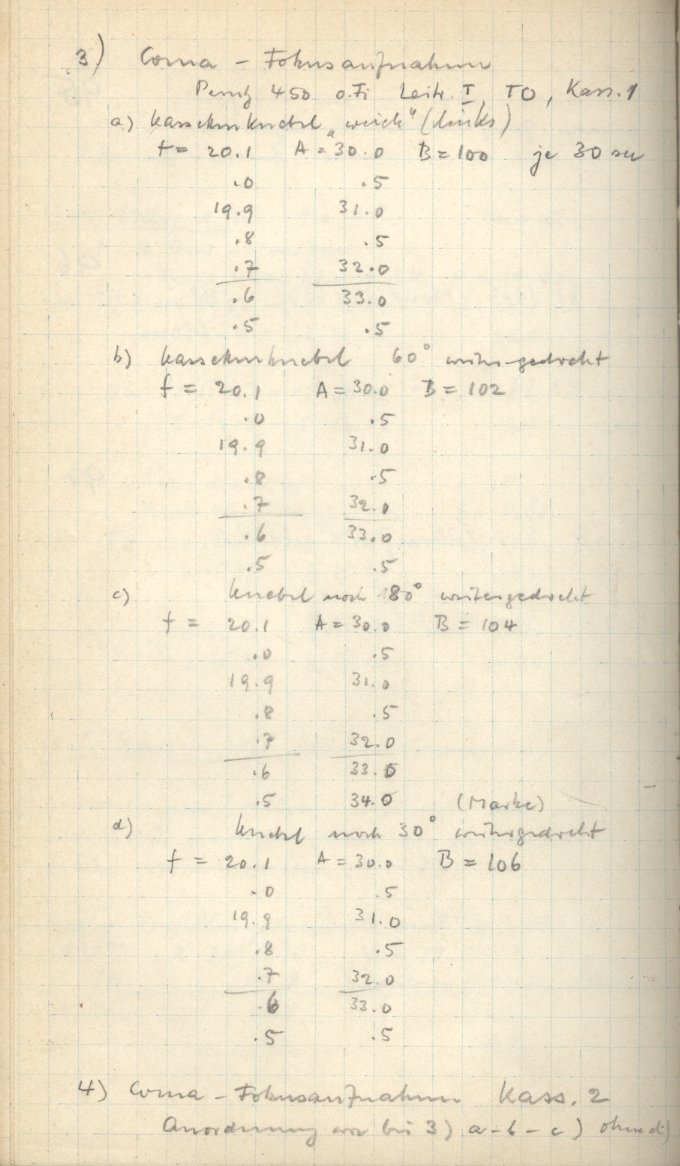 3) Coma - Fokusaufnahmen
450 o. Fi Leitr. I TO, Kass. 1
a) Kassettenknebel "weich" (links)
f = 20.1 A = 30.0 B = 100 je 30 sec
.0 .5
19.9 31.0
.8 .5
.7 32.0
.6 33.0
.5 .5
b) Kassettenknebel 60° weiter-gedreht
f = 20.1 A = 30.0 B = 102
.0 .5
19.9 31.0
.8 .5
.7 32.0
.6 33.0
.5 .5
c) Knebel noch 180° weitergedreht
f = 20.1 A = 30.0 B = 104
.0 .5
19.9 31.0
.8 .5
.7 32.0
.6 33.0
.5 34.0 (Marke)
d) Knebel noch 30° weitergedreht
f = 20.1 A = 30.0 B = 106
.0 .5
19.9 31.0
.8 .5
.7 32.0
.6 33.0
.5 .5
4) Coma - Fokusaufnahmen Kass. 2
Anordnung wie bei 3) a - b - c) ohne d)